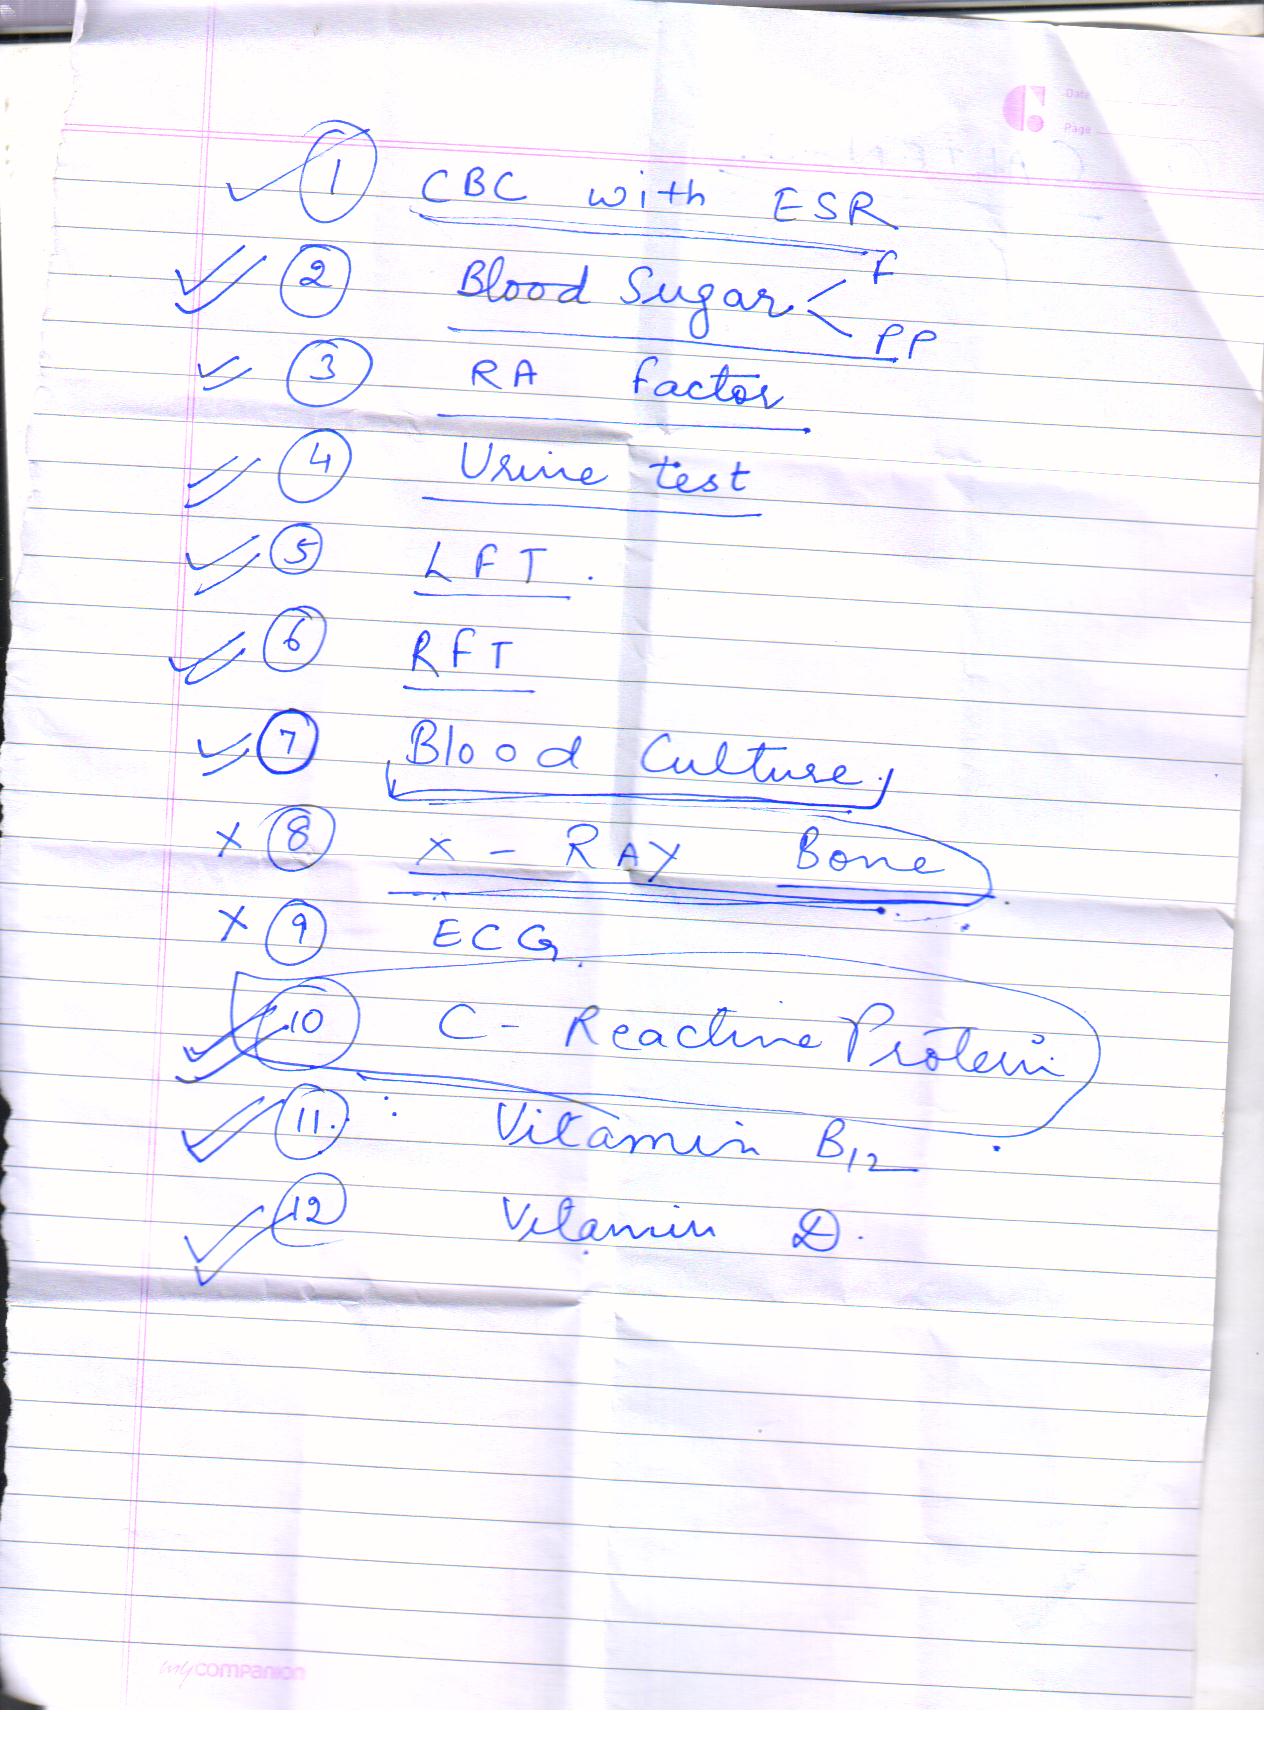 Date
Page
✓ 1 CBC with ESR
✓✓ 2 Blood Sugar < F
PP
✓✓ 3 RA factor
✓✓ 4 Urine test
✓✓ 5 LFT.
✓✓ 6 RFT
✓✓ 7 Blood Culture
X 8 X - RAY Bone
X 9 ECG.
✓✓ 10 C - Reactive Protein
✓✓ 11. : Vitamin B12
✓✓ 12 Vitamin D.
mycompanion